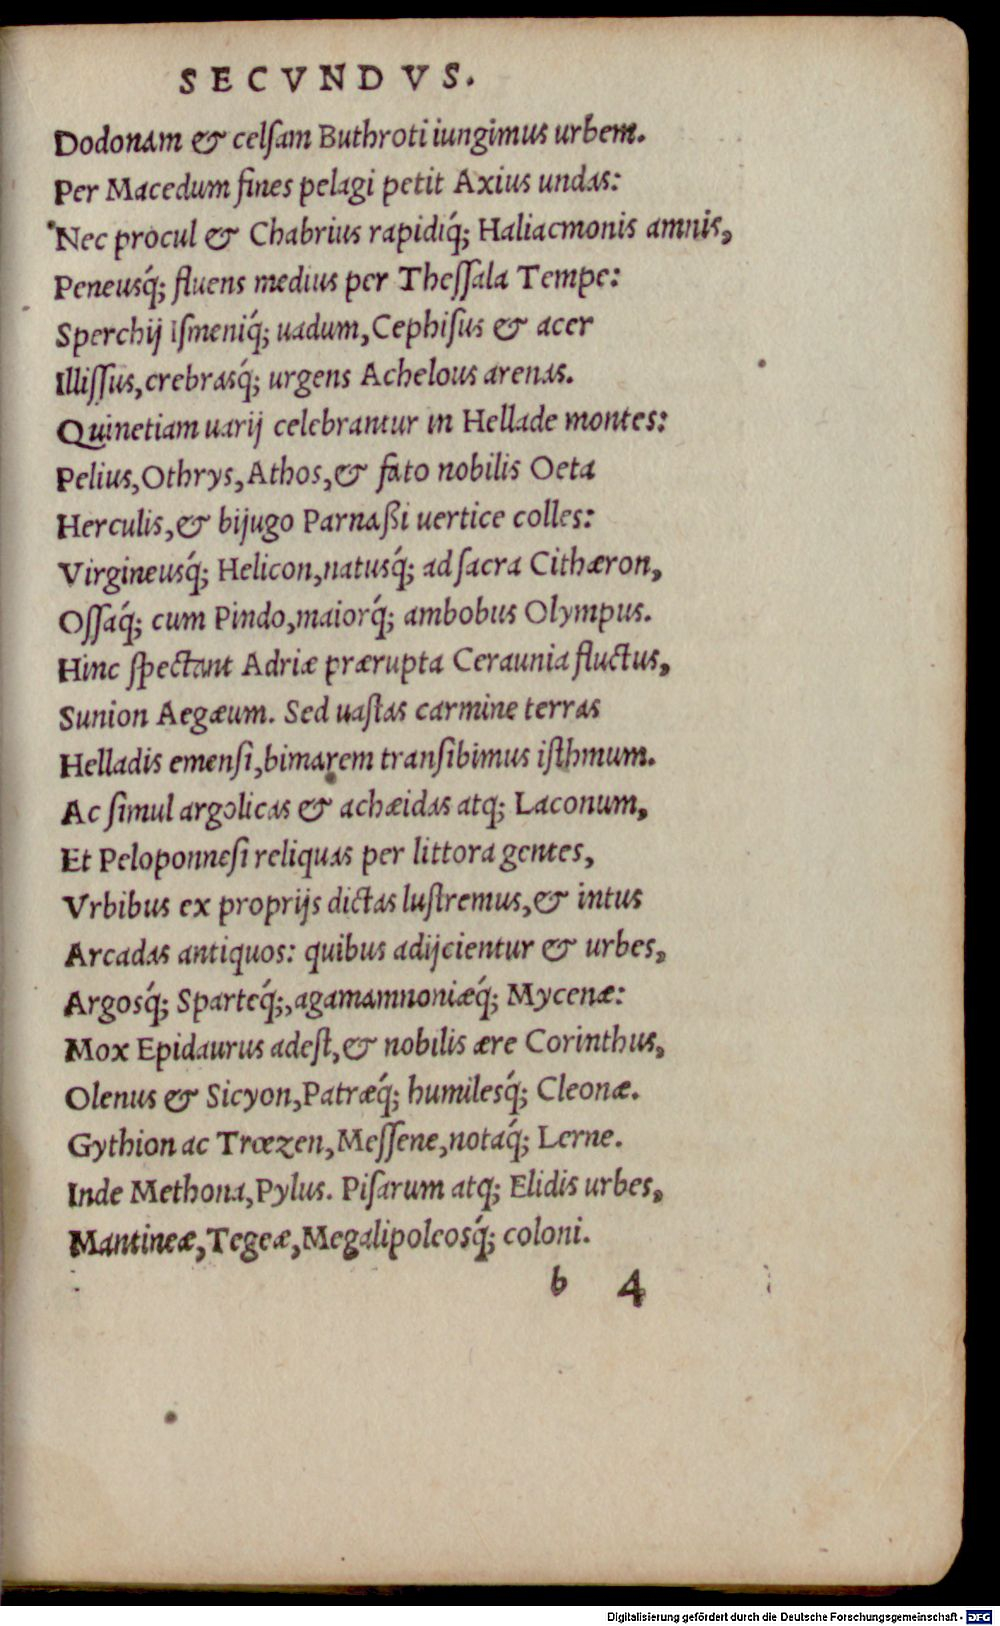 SECVNDVS.
Dodonam & celſam Buthroti iungimus urbem.
Per Macedum fines pelagi petit Axius undas:
Nec procul & Chabrius rapidiq́; Haliacmonis amnis,
Peneusq́; fluens medius per Theſſala Tempe:
Sperchij Iſmeniq́; uadum, Cephiſus & acer
Illiſſus, crebrasq́; urgens Achelous arenas.
Quinetiam uarij celebrantur in Hellade montes:
Pelius, Othrys, Athos, & fato nobilis Oeta
Herculis, & bijugo Parnaßi uertice colles:
Virgineusq́; Helicon, natusq́; ad ſacra Cithæron,
Oſſaq́; cum Pindo, maiorq́; ambobus Olympus.
Hinc ſpectant Adriæ prærupta Ceraunia fluctus,
Sunion Aegæum. Sed uaſtas carmine terras
Helladis emenſi, bimarem tranſibimus iſthmum.
Ac ſimul argolicas & achæidas atq; Laconum,
Et Peloponneſi reliquas per littora gentes,
Vrbibus ex proprijs dictas luſtremus, & intus
Arcadas antiquos: quibus adijcientur & urbes,
Argosq́; Sparteq́;, agamamnoniæq́; Mycenæ:
Mox Epidaurus adeſt, & nobilis ære Corinthus,
Olenus & Sicyon, Patræq́; humilesq́; Cleonæ.
Gythion ac Trœzen, Meſſene, notaq́; Lerne.
Inde Methona, Pylus. Piſarum atq; Elidis urbes,
Mantineæ, Tegeæ, Megalipoleosq́; coloni.
b 4
Digitalisierung gefördert durch die Deutsche Forschungsgemeinschaft - DFG